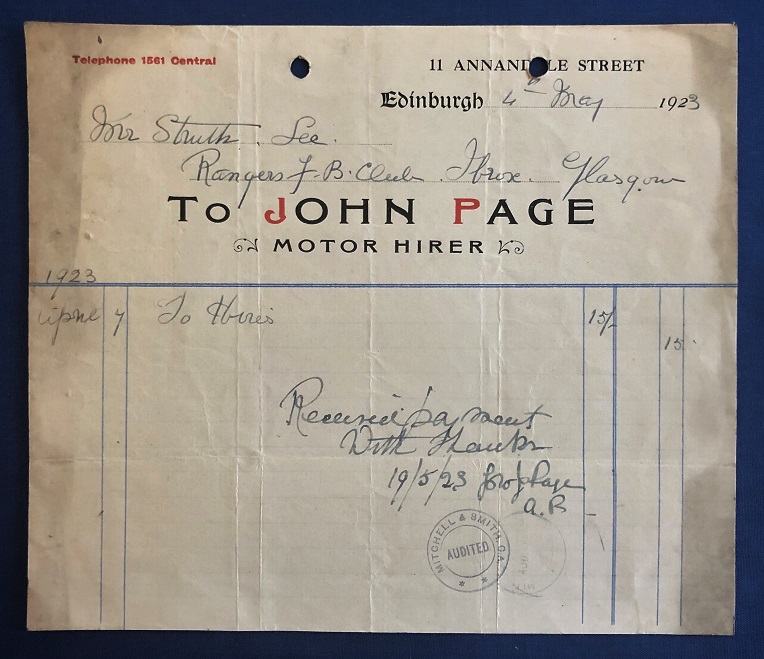 Telephone 1561 Central
11 ANNANDALE STREET
Edinburgh 4th May 1923
Mr Struth. Sec.
Rangers F.B. Club. Ibrox. Glasgow
To JOHN PAGE
MOTOR HIRER
1923
April 7 To Hires 15/-
15
Received payment
With Thanks
19/5/23 for J Page
A.P.
MITCHELL & SMITH C.A.
AUDITED